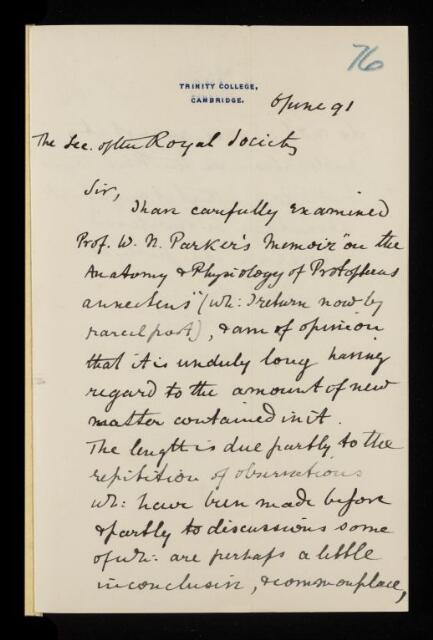 76
TRINITY COLLEGE,
CAMBRIDGE.
6 June 91
The Sec. of the Royal Society
Sir,
I have carefully examined
Prof. W. N. Parker's Memoir "on the
Anatomy & Physiology of Protopterus
annectens" (wh: I return now by
parcel post), & am of opinion
that it is unduly long having
regard to the amount of new
matter contained in it.
The length is due partly to the
repitition of observations
wh: have been made before
& partly to discussions some
of wh: are perhaps a little
inconclusive, & commonplace,